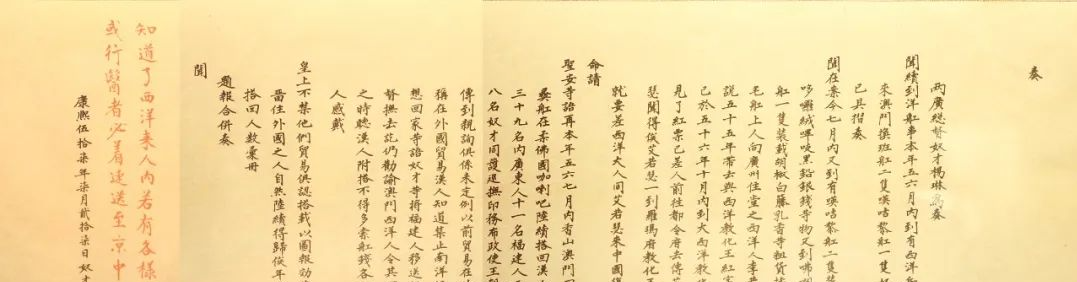 奏
兩廣總督奴才楊琳為奏
聞續到洋舡事本年五六月內到有西洋
來澳門撰班舡二隻㖸咭黎舡一隻
已具摺奏
聞在案今七月內又到有㖸咭黎舡二隻
哆囉絨嗶吱黑鉛銀錢等物又到
舡一隻裝載胡椒白藤乳香等
毛舡上人向廣州住堂之西洋人李
說五十五年帶去與西洋教化王紅
已於五十六年十月內到大西洋教
見了紅票已差人前往都令府去傳
瑟聞得俟艾若瑟一到羅瑪府教化王
就要差西洋大人同艾若瑟來中國
命請
聖安等語再本年五六七月內香山澳門
舡在柔佛國咖喇吧陸續搭回漢
三十九名內廣東人十一名福建人
八名奴才同護巡撫印務布政使王
傳到親詢俱係未定例以前貿易在
稱在外國貿易漢人知道禁止南洋
想回家等語奴才等將福建人移送
督撫去訖仍勸諭澳門西洋人令其
之時聽漢人附搭不得多索舡錢各
人感戴
皇上不禁他們貿易俱認搭載以圖報効
留住外國之人自然陸續得歸俟年
搭回人數彙冊
題報合併奏
聞
康熙伍拾柒年柒月貳拾柒日奴才
知道了西洋来人内若有各樣
或行醫者必着速送至京中